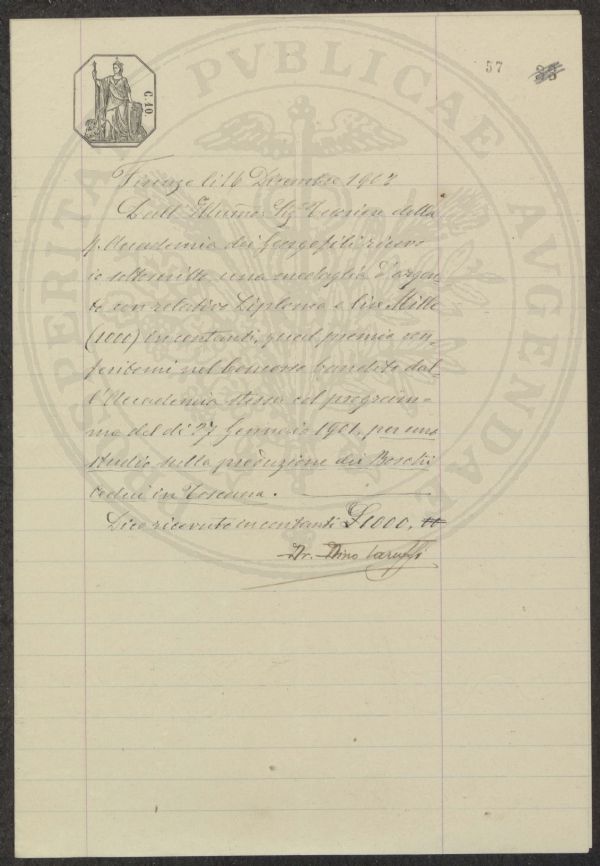 57 25
C. 10
PROSPERITATI PVBLICAE AVGENDAE
Firenze li 16 Dicembre 1902
Dall' Illmo. Sig. Tesoriere della
R. Accademia dei Georgofili ricevo
io sottoscritto una medaglia d'argen-
to con relativo Diploma e lire Mille
(1000) in contanti, qual premio con-
feritomi nel Concorso bandito dal-
l'Accademia stessa col program-
ma del dì 27 Gennaio 1901, per uno
studio sulla produzione dei Boschi
cedui in Toscana.
Dico ricevuto in contanti £1000.
Dr. Dino Taruffi